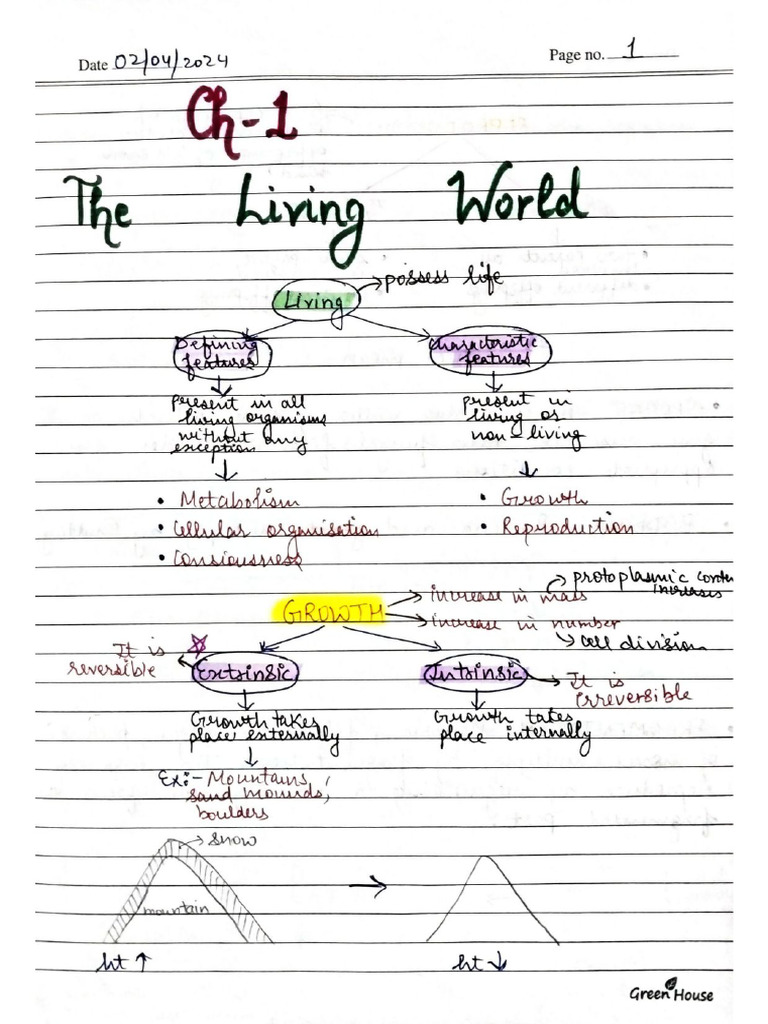 Date 02/04/2024
Page no. 1
Ch-1
The Living World
Living → possess life
Defining features
Characteristic features
present in all living organisms without any exception
present in living or non-living
• Metabolism
• Cellular organisation
• Consiousness
• Growth
• Reproduction
GROWTH
→ increase in mass
→ protoplasmic
→ increase in number
→ cell division
Extrinsic
It is reversible
Intrinsic
→ It is irreversible
Growth takes place externally
Growth takes place internally
Ex:- Mountains, sand mounds, boulders
→ snow
mountain
→
ht ↑
ht ↓
Green House